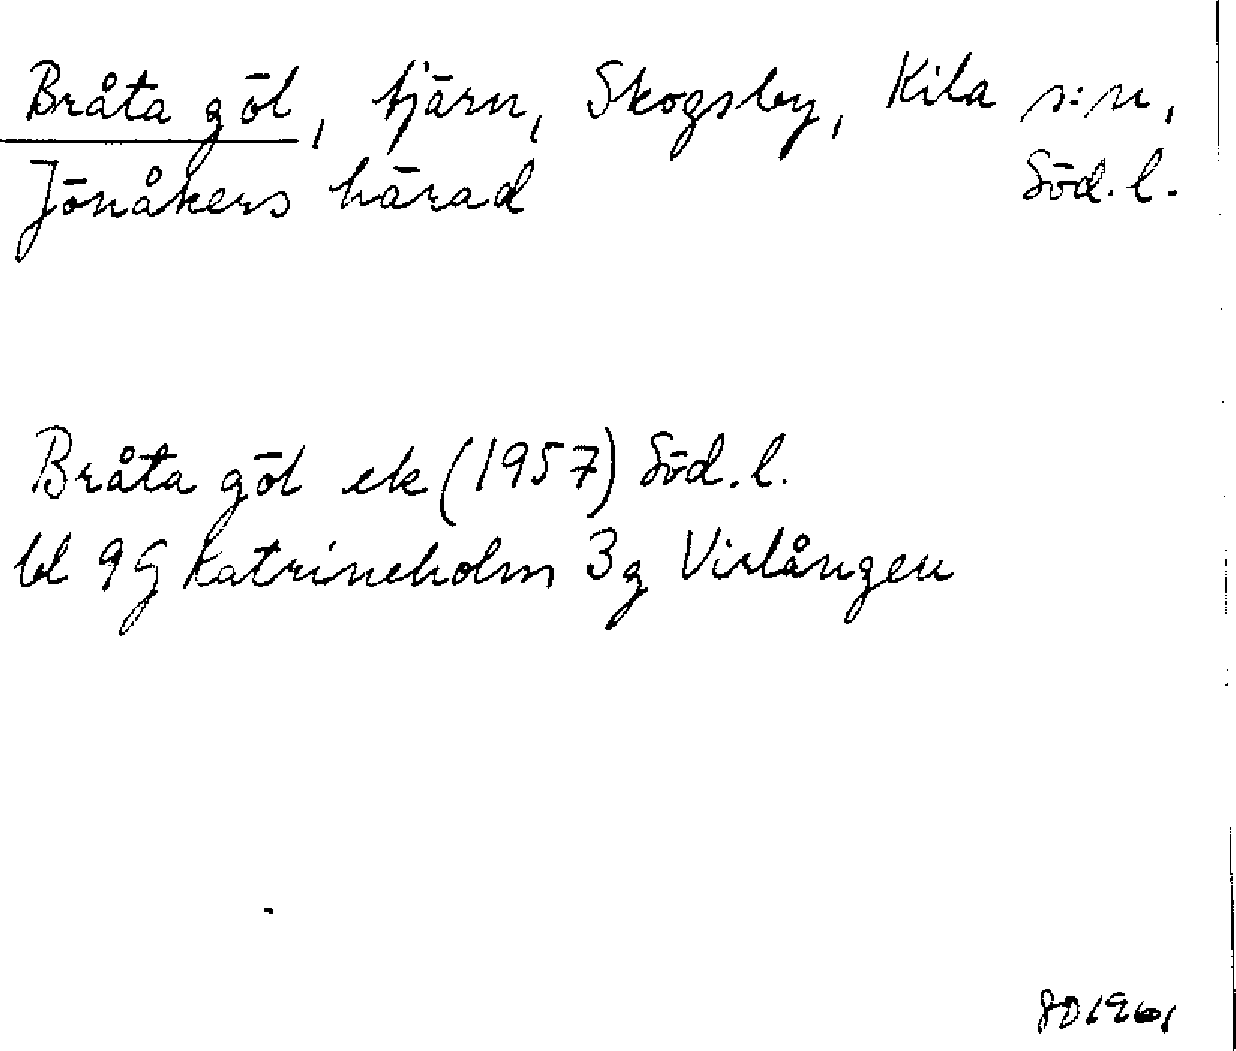 Bråta göl, tjärn, Skogsby, Kila s:n,
Jönåkers härad Söd.l.
Bråta göl ek (1957) Söd.l.
bl 9G Katrineholm 3g Virlången